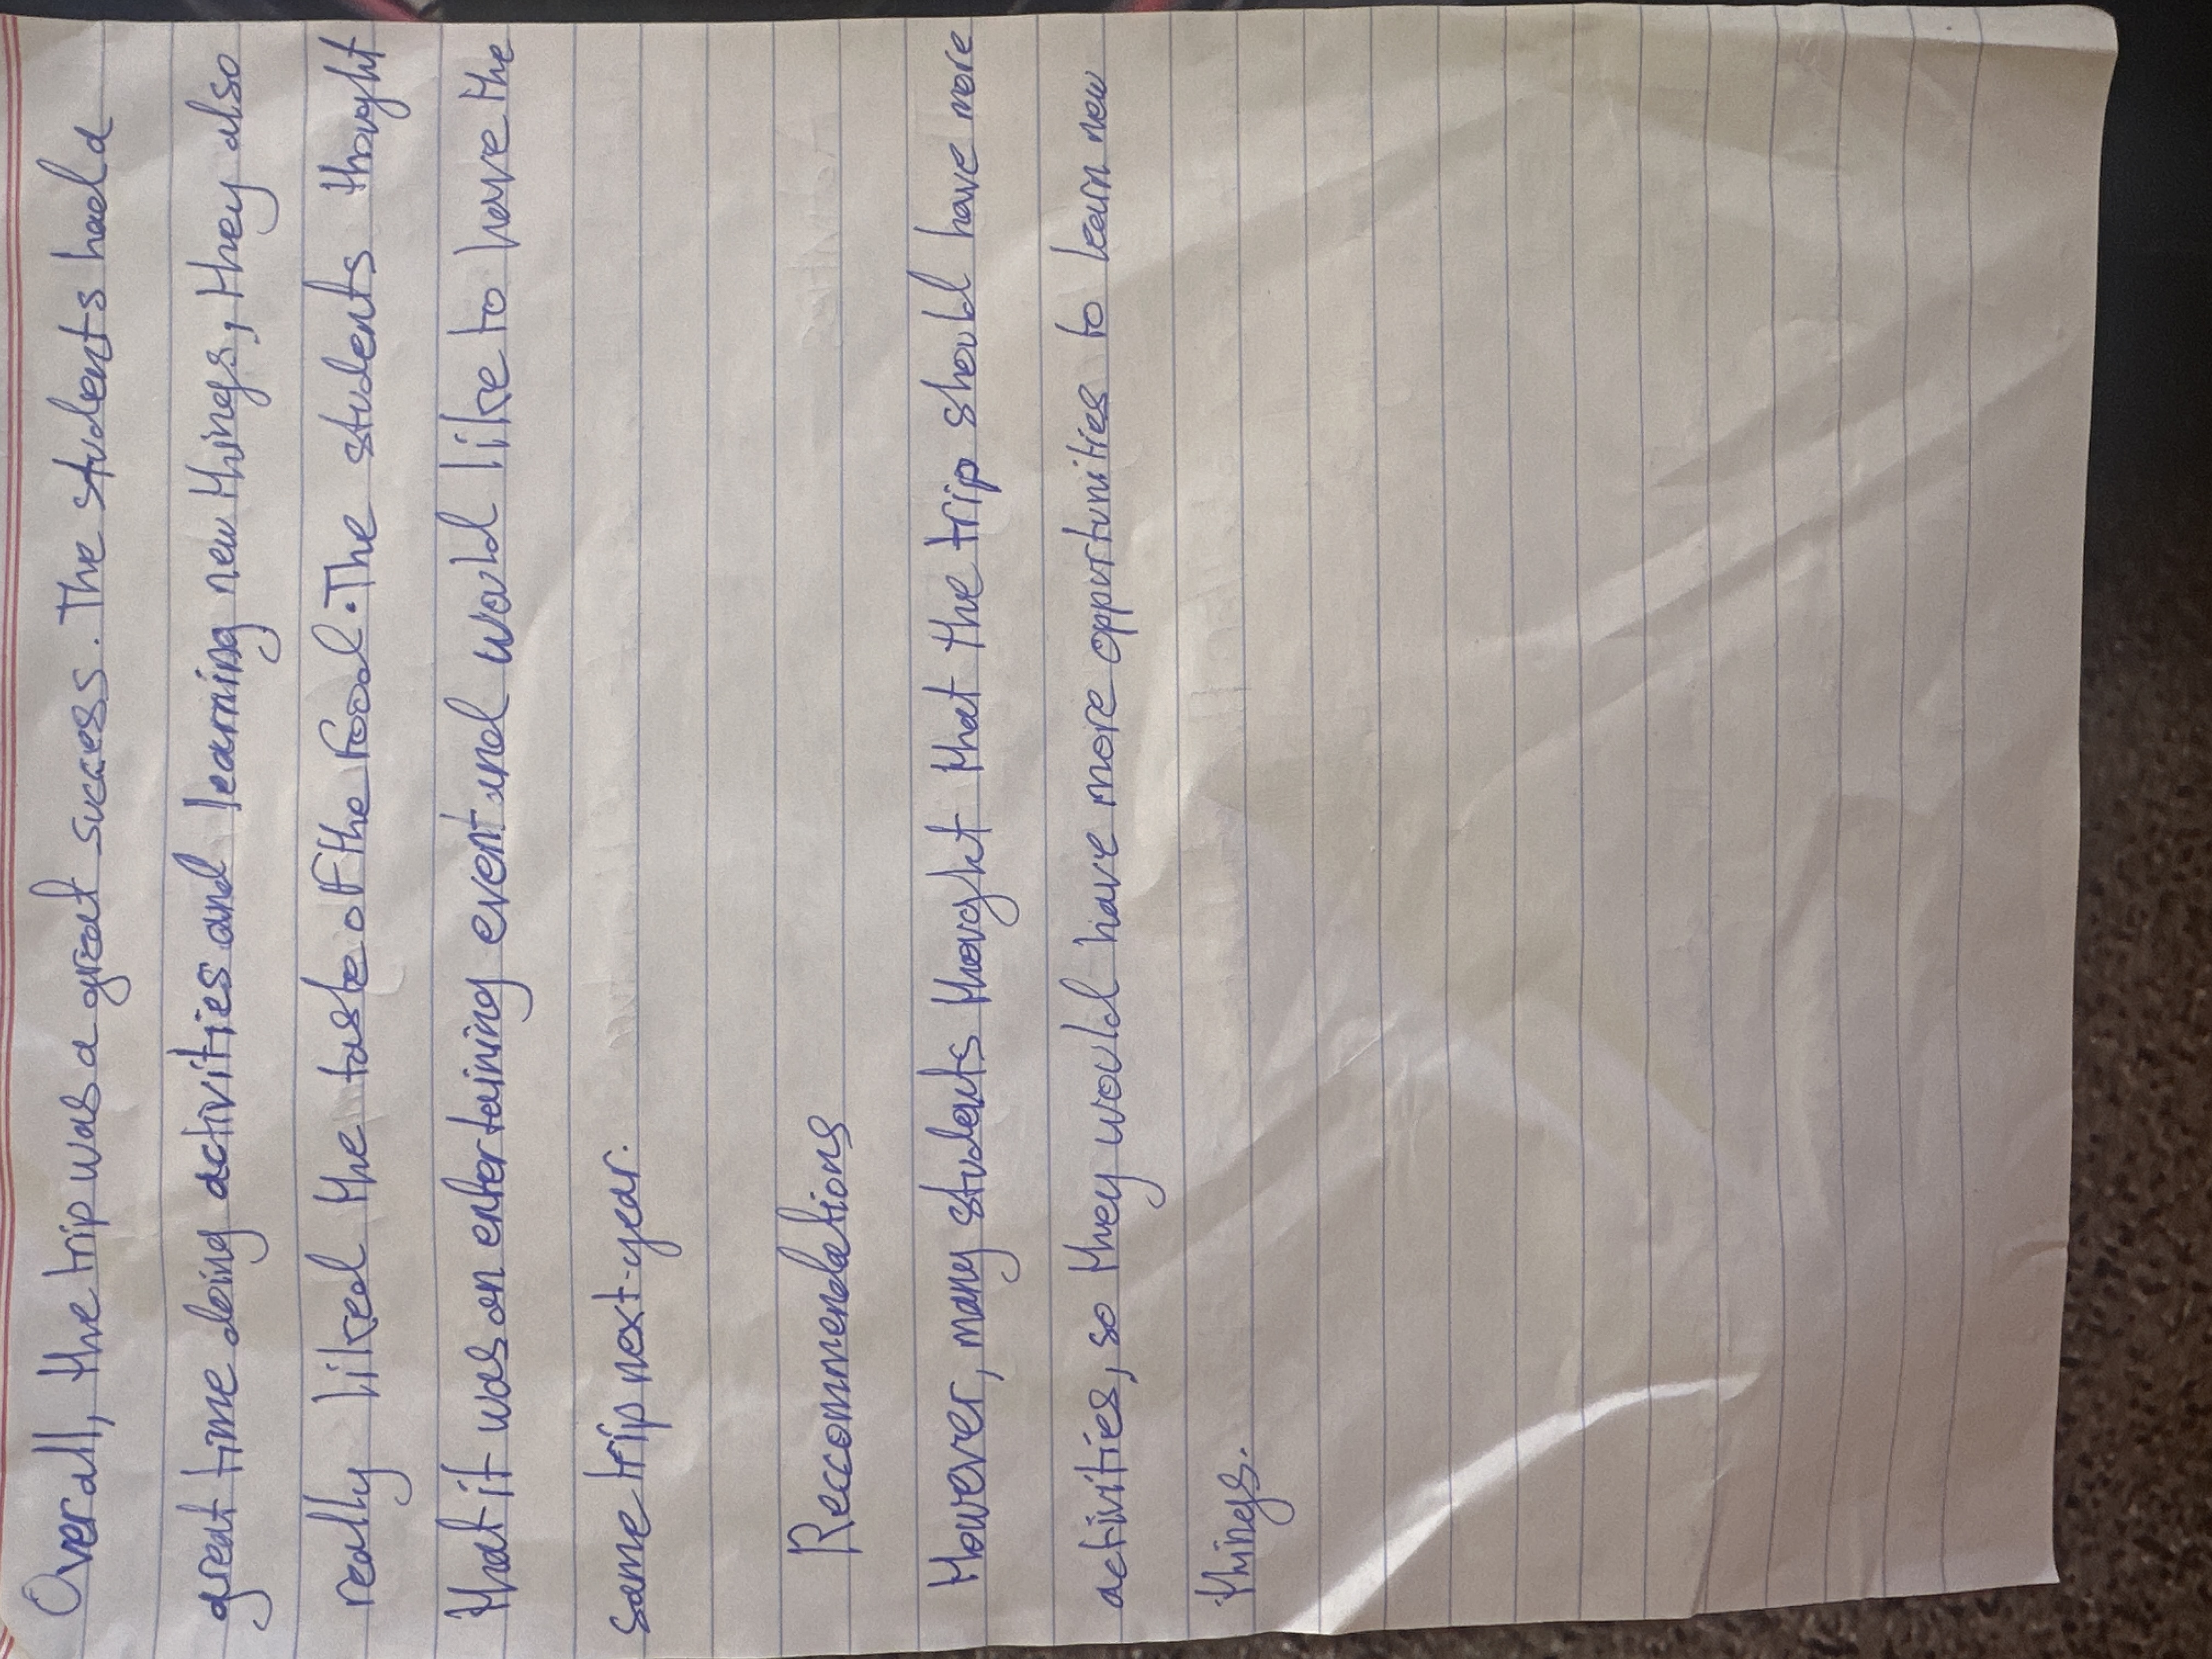 Overall, the trip was a great success. The students had a
great time doing activities and learning new things, they also
really liked the taste of the food. The students thought
that it was an entertaining event and would like to have the
same trip next-year.
Reccommendations
However, many students thought that the trip should have more
activities, so they would have more opportunities to learn new
things.